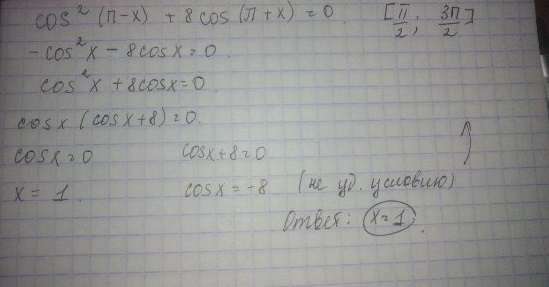 cos² (π-x) + 8 cos (π+x) = 0 [π/2; 3π/2]
- cos²x - 8cosx = 0
cos²x + 8cosx = 0
cos x (cosx + 8) = 0.
cosx = 0 cosx + 8 = 0
x = 1. cosx = -8 (не уд. условию)
Ответ: x = 1.